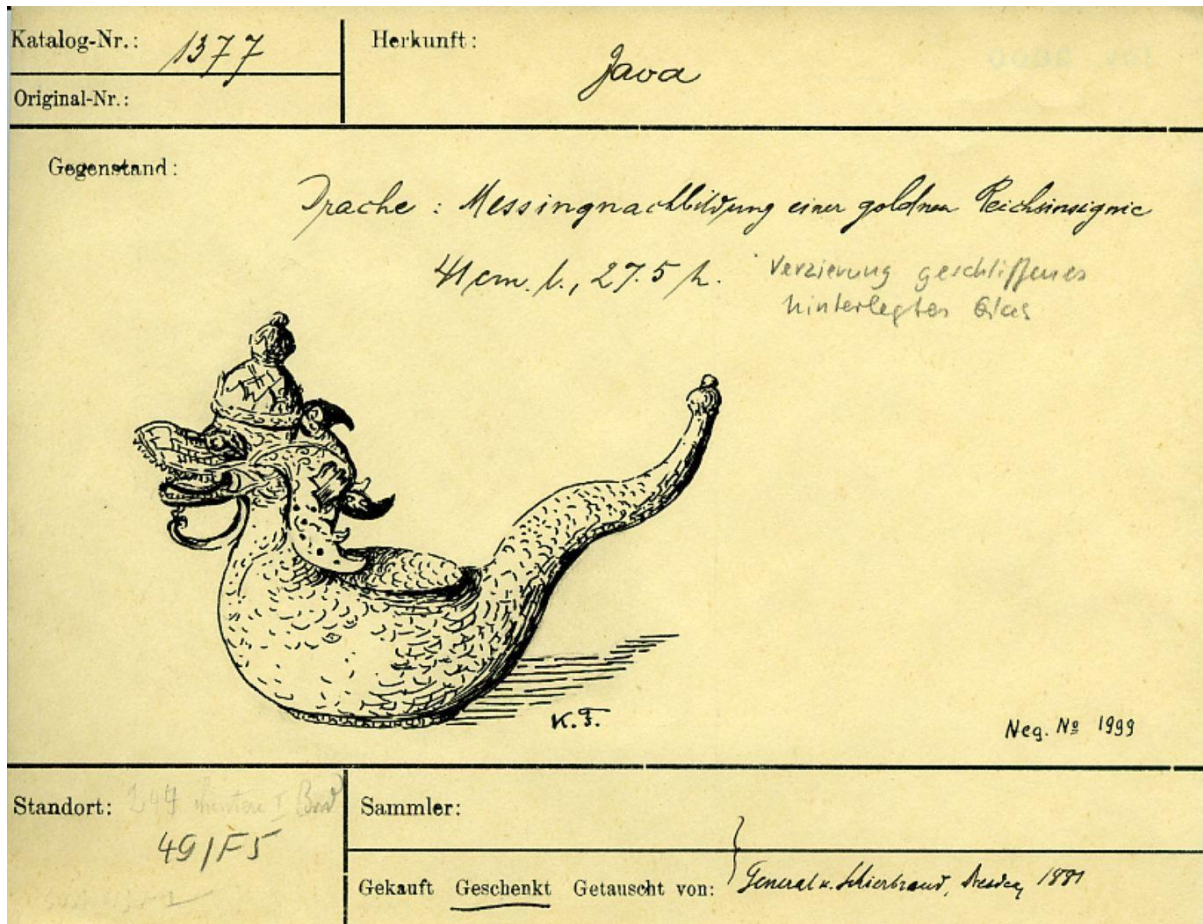 Katalog-Nr.: 1377
Herkunft: Java
Original-Nr.:
Gegenstand:
Drache : Messingnachbildung einer goldnen Reichsinsignie
41 cm. l., 27.5 h.
Verzierung geschliffenes
hinterlegtes Glas
K. F.
Neg. Nº 1999
Standort:
49/F5
Sammler:
Gekauft Geschenkt Getauscht von: General v. Schierbrand, Dresden, 1881